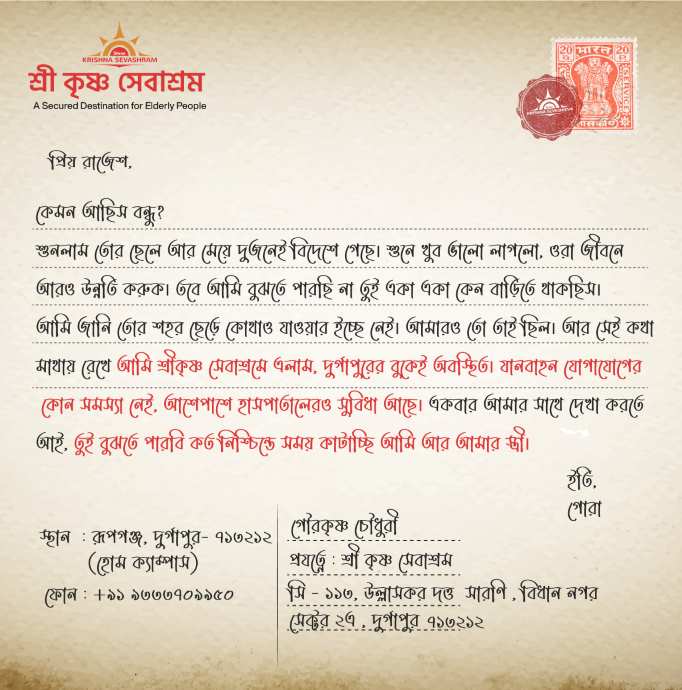 Shree
KRISHNA SEVASHRAM
শ্রী কৃষ্ণ সেবাশ্রম
A Secured Destination for Elderly People
20 भारत 20
প্রিয় রাজেশ,
কেমন আছিস বন্ধু?
শুনলাম তোর ছেলে আর মেয়ে দুজনেই বিদেশে গেছে। শুনে খুব ভালো লাগলো, ওরা জীবনে
আরও উন্নতি করুক। তবে আমি বুঝতে পারছি না তুই একা একা কেন বাড়িতে থাকছিস।
আমি জানি তোর শহর ছেড়ে কোথাও যাওয়ার ইচ্ছে নেই। আমারও তো তাই ছিল। আর সেই কথা
মাথায় রেখে আমি শ্রীকৃষ্ণ সেবাশ্রমে এলাম, দুর্গাপুরের বুকেই অবস্থিত। যানবাহন যোগাযোগের
কোন সমস্যা নেই, আশেপাশে হাসপাতালেরও সুবিধা আছে। একবার আমার সাথে দেখা করতে
আই, তুই বুঝতে পারবি কত নিশ্চিন্তে সময় কাটাচ্ছি আমি আর আমার স্ত্রী।
ইতি,
গোরা
স্থান : রূপগঞ্জ, দুর্গাপুর- ৭১৩২১২
(হোম ক্যাম্পাস)
ফোন : +৯১ ৯৩৩৩৭০৯৯৫০
গৌরকৃষ্ণ চৌধুরী
প্রযত্নে : শ্রী কৃষ্ণ সেবাশ্রম
সি - ১১৩, উল্লাসকর দত্ত সারণি , বিধান নগর
সেক্টর ২এ , দুর্গাপুর ৭১৩২১২